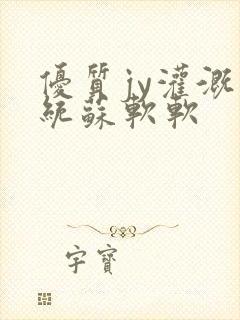 優質jy灌溉
統蘇軟軟
宇寶